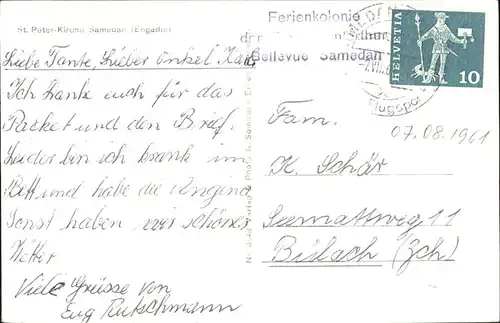 St. Peter-Kirche Samedan (Engadin)
Ferienkolonie
Bellevue Samedan
HELVETIA
10
Flugsport
07.08.1961
Liebe Tante, Lieber Onkel Karl,
Ich danke euch für das
Packet und den Brief.
Leider bin ich krank im
Bett und habe die Angina
Sonst haben wir schönes
Wetter
Viele Grüsse von
Eug Rutschmann
Fam.
K. Schär
Seemattweg 11
Bülach (Zch)